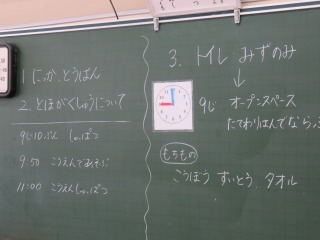 1 にっか、とうばん
2. とほがくしゅうについて
9じ10ぷん しゅっぱつ
9:50 こうえんであそぶ
11:00 こうえんしゅっぱつ
3. トイレ みずのみ
↓
9じ オープンスペース
たてわりはんでならぶ
もちもの
こうぼう すいとう、タオル